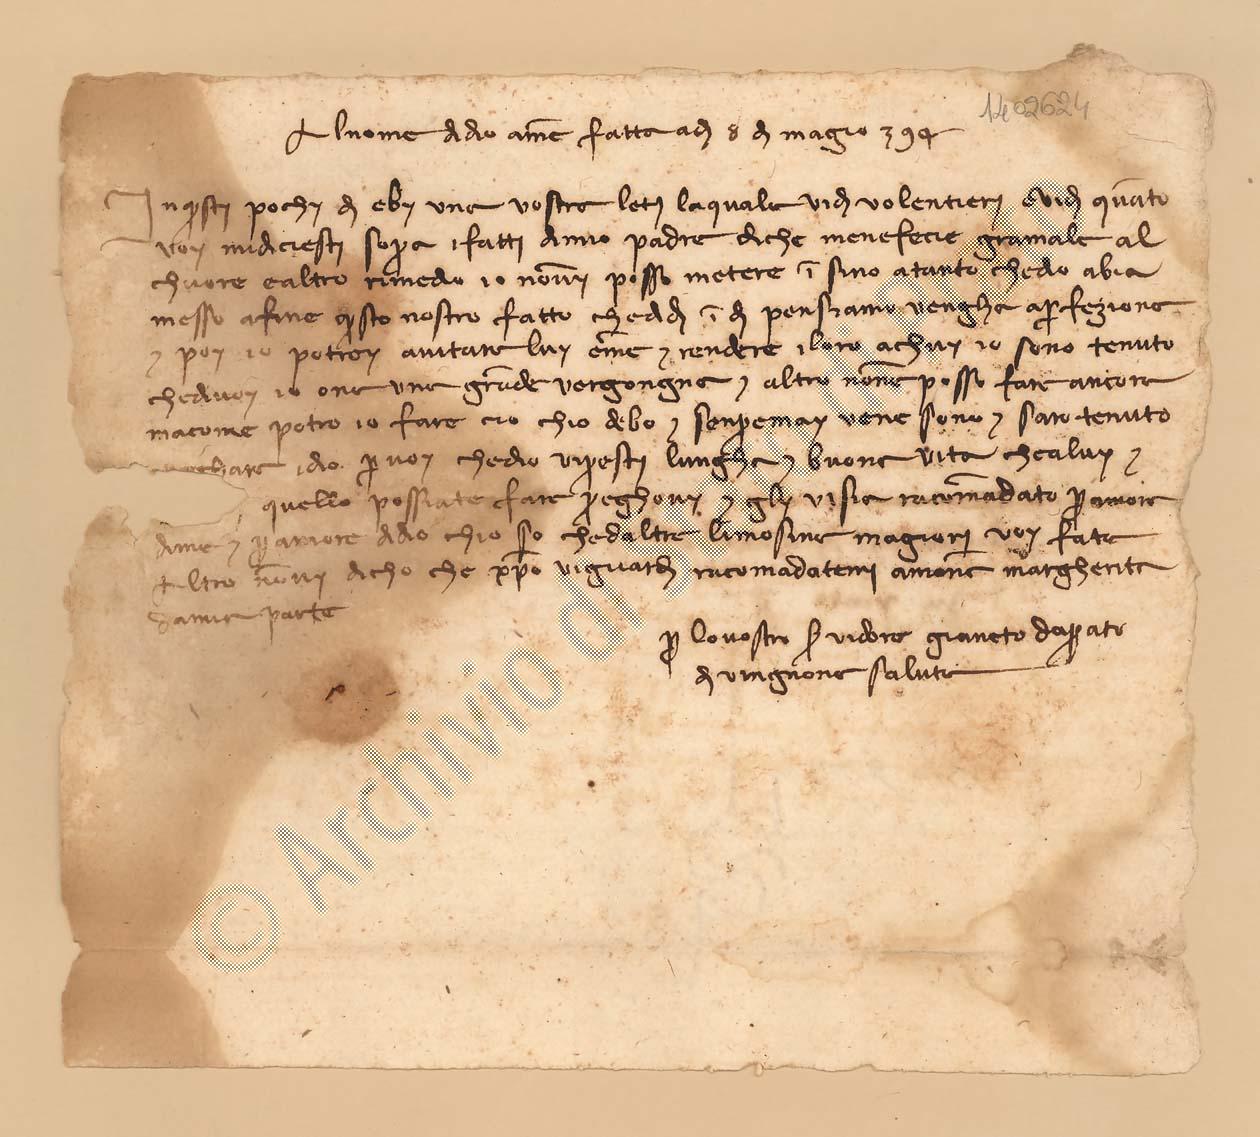 1402624
Al nome di dio ame fatta adi 8 di magio 394
In questi pochi di ebi una vostra letª la quale vidi volentieri e vidi quāto
voi mi diciesti sopra i fatti di mio padre di che me ne fecie gra male al
chuore e altro rimedo io nōvi posso metere ī sino a tanto che dio abia
messo a fine questo nostro fatto che di di ī di pensiamo vengha a perfezione
e poi io potrei aiutare lui e me e rendere i loro a chui io sono tenuto
che di voi io one una grāde vergongna e altro nōne posso fare ancora
ma come potro io fare cio ch io debo e senpre mai vene sono e saro tenuto
idio per voi che dio vi presti lungha e buona vita che a lui e
quello possiate fare preghovi e gli vi sia racomādato per amore
di me e per amore di dio ch io so che d altre limosine magiori voi fate
Altro nōvi dicho che xpo vi guardi racomādatemi a mōna margherita
da mia parte
per lo vostro servidore gianeto da prato
di vingnone salute
© Archivio di Stato di Prato